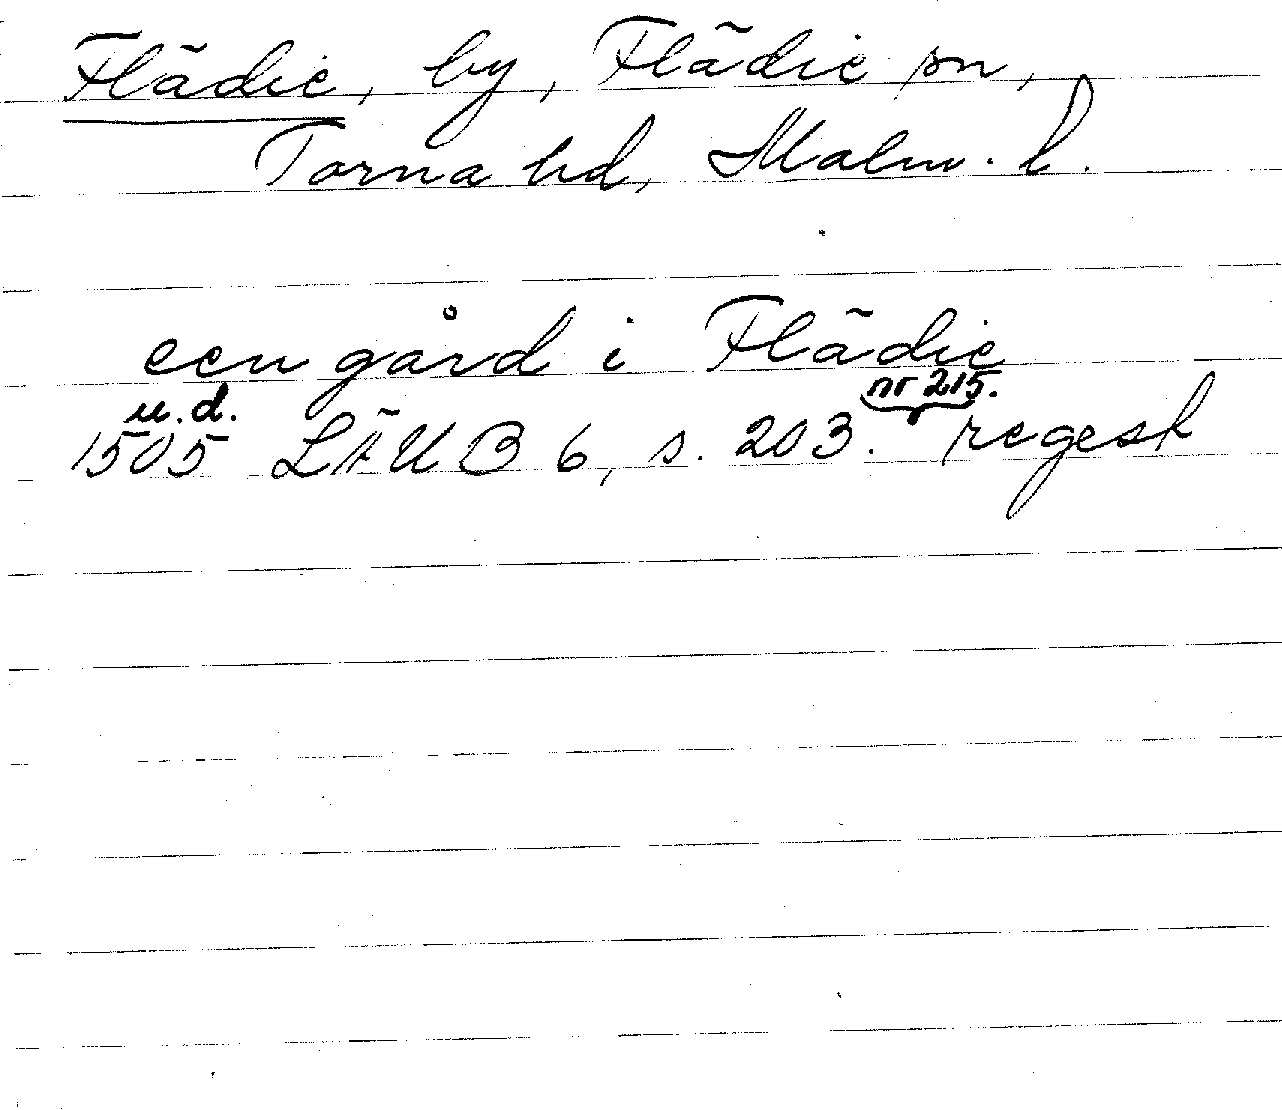 Flädie, by, Flädie sn,
Torna hd, Malm. l.
een gård i Flädie
u.d. nr 215.
1505 LÄUB 6, s. 203. regest